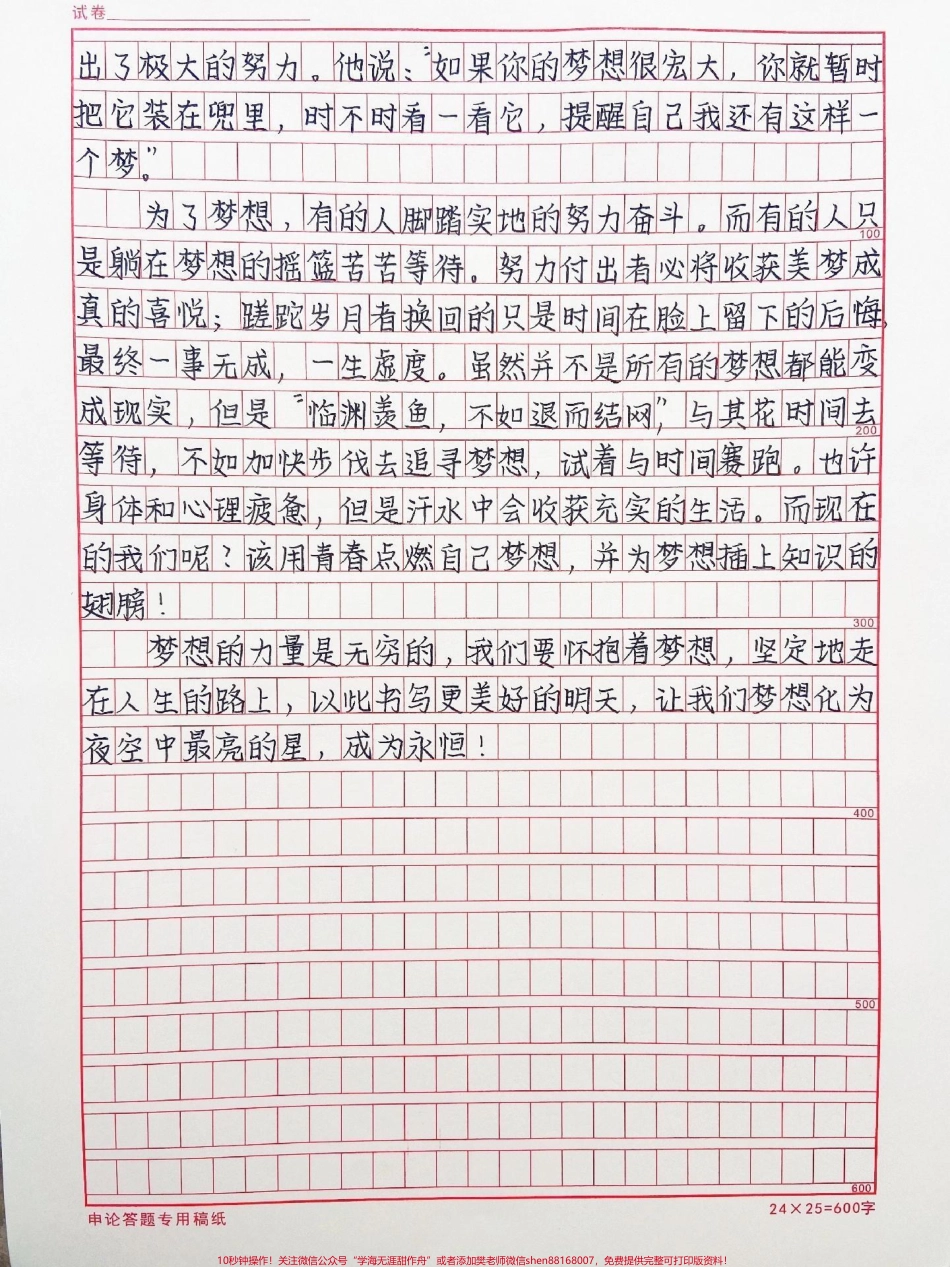 试卷
出了极大的努力。他说："如果你的梦想很宏大，你就暂时
把它装在兜里，时不时看一看它，提醒自己我还有这样一
个梦"。
为了梦想，有的人脚踏实地的努力奋斗。而有的人只
100
是躺在梦想的摇篮苦苦等待。努力付出者必将收获美梦成
真的喜悦；蹉跎岁月者换回的只是时间在脸上留下的后悔，
最终一事无成，一生虚度。虽然并不是所有的梦想都能变
成现实，但是"临渊羡鱼，不如退而结网"，与其花时间去
200
等待，不如加快步伐去追寻梦想，试着与时间赛跑。也许
身体和心理疲惫，但是汗水中会收获充实的生活。而现在
的我们呢？该用青春点燃自己梦想，并为梦想插上知识的
翅膀！
300
梦想的力量是无穷的，我们要怀抱着梦想，坚定地走
在人生的路上，以此书写更美好的明天，让我们梦想化为
夜空中最亮的星，成为永恒！
400
500
600
申论答题专用稿纸
24×25=600字
10秒钟操作！关注微信公众号"学海无涯甜作舟"或者添加樊老师微信shen88168007，免费提供完整可打印版资料！